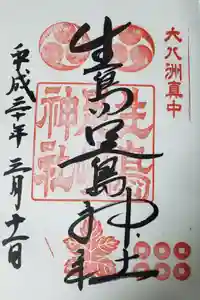 大八洲真中
生島足島神社
生島足島神社
平成三十年三月十一日